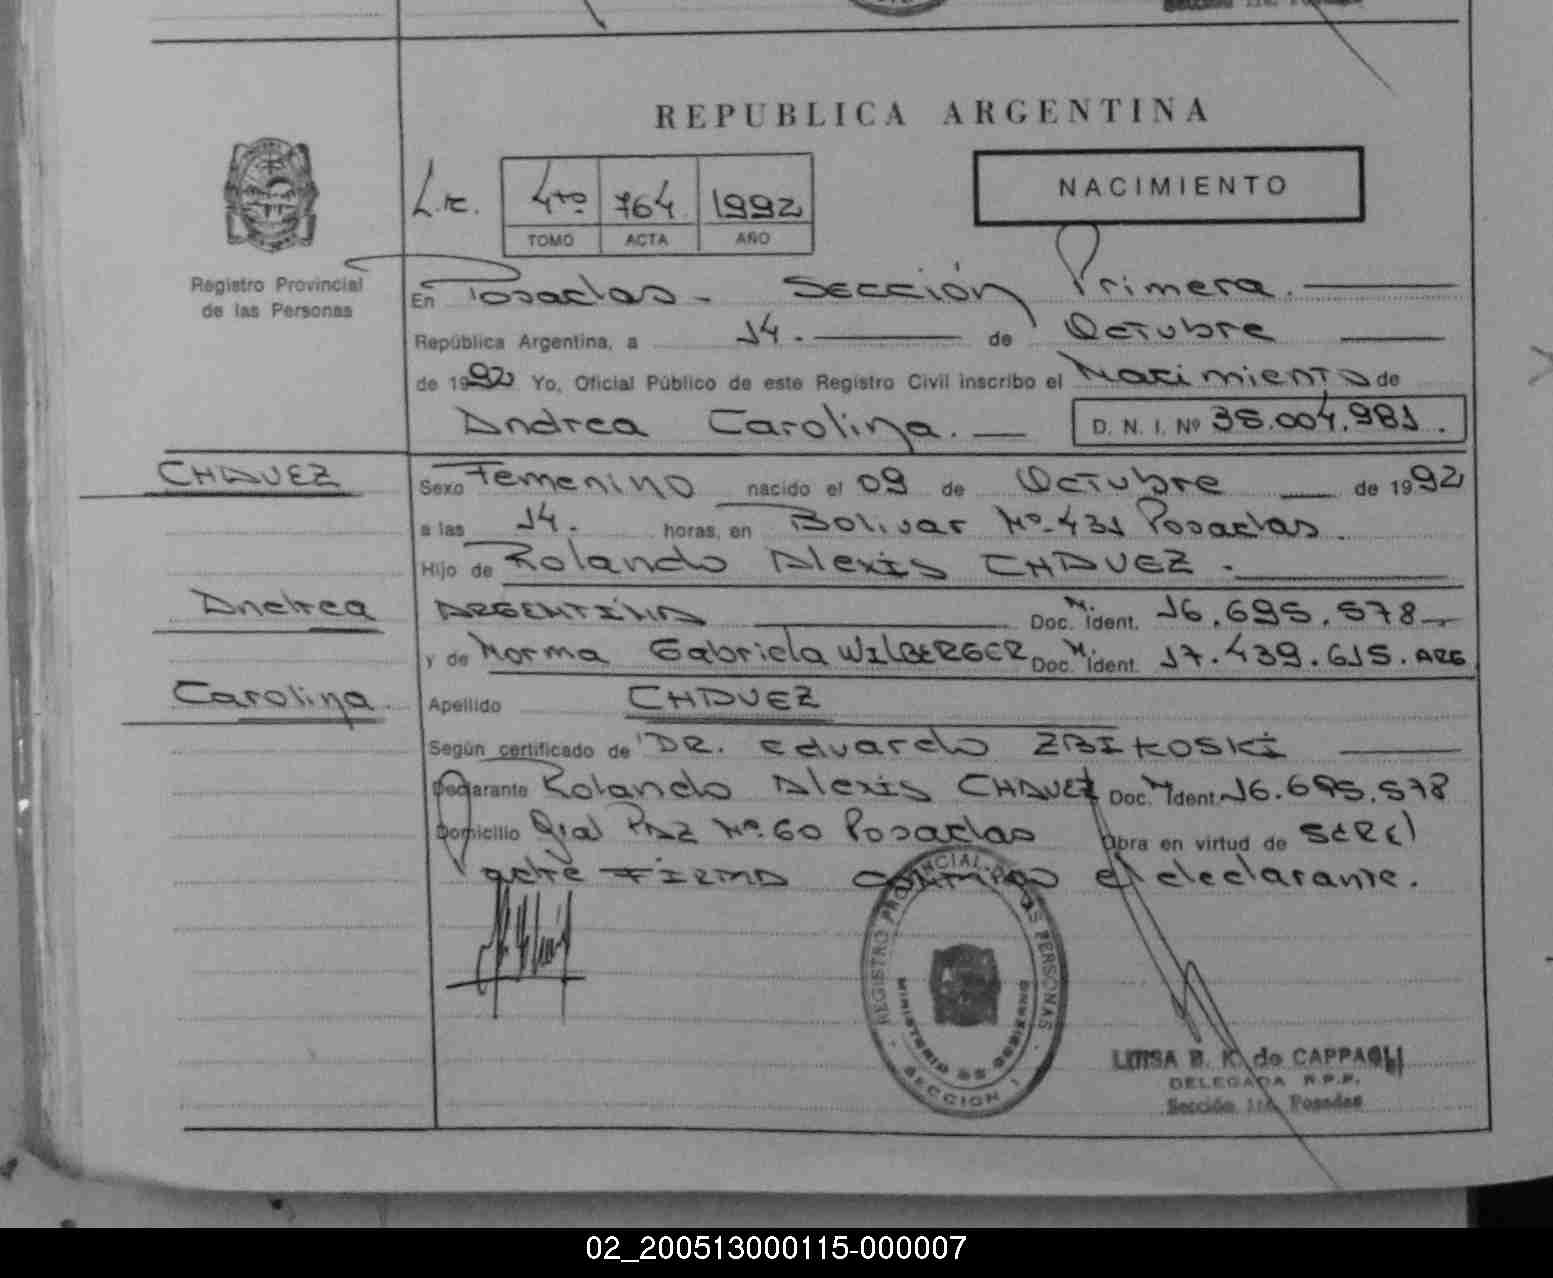 REPUBLICA ARGENTINA
4to 764 1992
TOMO ACTA AÑO
NACIMIENTO
Registro Provincial
de las Personas
En Posadas - Sección Primera.
República Argentina, a 14. de Octubre
de 1992 Yo, Oficial Público de este Registro Civil inscribo el Nacimiento de
Andrea Carolina.
D. N. I. Nº 38.004.981.
CHAVEZ
Andrea
Carolina
Sexo Femenino nacido el 09 de Octubre de 1992
a las 14. horas, en Bolivar Nº 431 Posadas.
Hijo de Rolando Alexis CHAVEZ.
ARGENTINA Doc. M. Ident. 16.695.578
y de Norma Gabriela WILBERGER Doc. M. Ident. 17.439.615. ARG
Apellido CHAVEZ
Según certificado de DR. eduardo ZBIKOSKI
Declarante Rolando Alexis CHAVEZ Doc. M Ident. 16.695.578
Domicilio Gral PAZ Nº 60 Posadas Obra en virtud de
FIRMA el declarante.
REGISTRO PROVINCIAL DE LAS PERSONAS
MINISTERIO DE GOBIERNO
SECCION 1
LUISA B. K. de CAPPAGLI
DELEGADA R.P.P.
Sección 1ra. Posadas
02_200513000115-000007